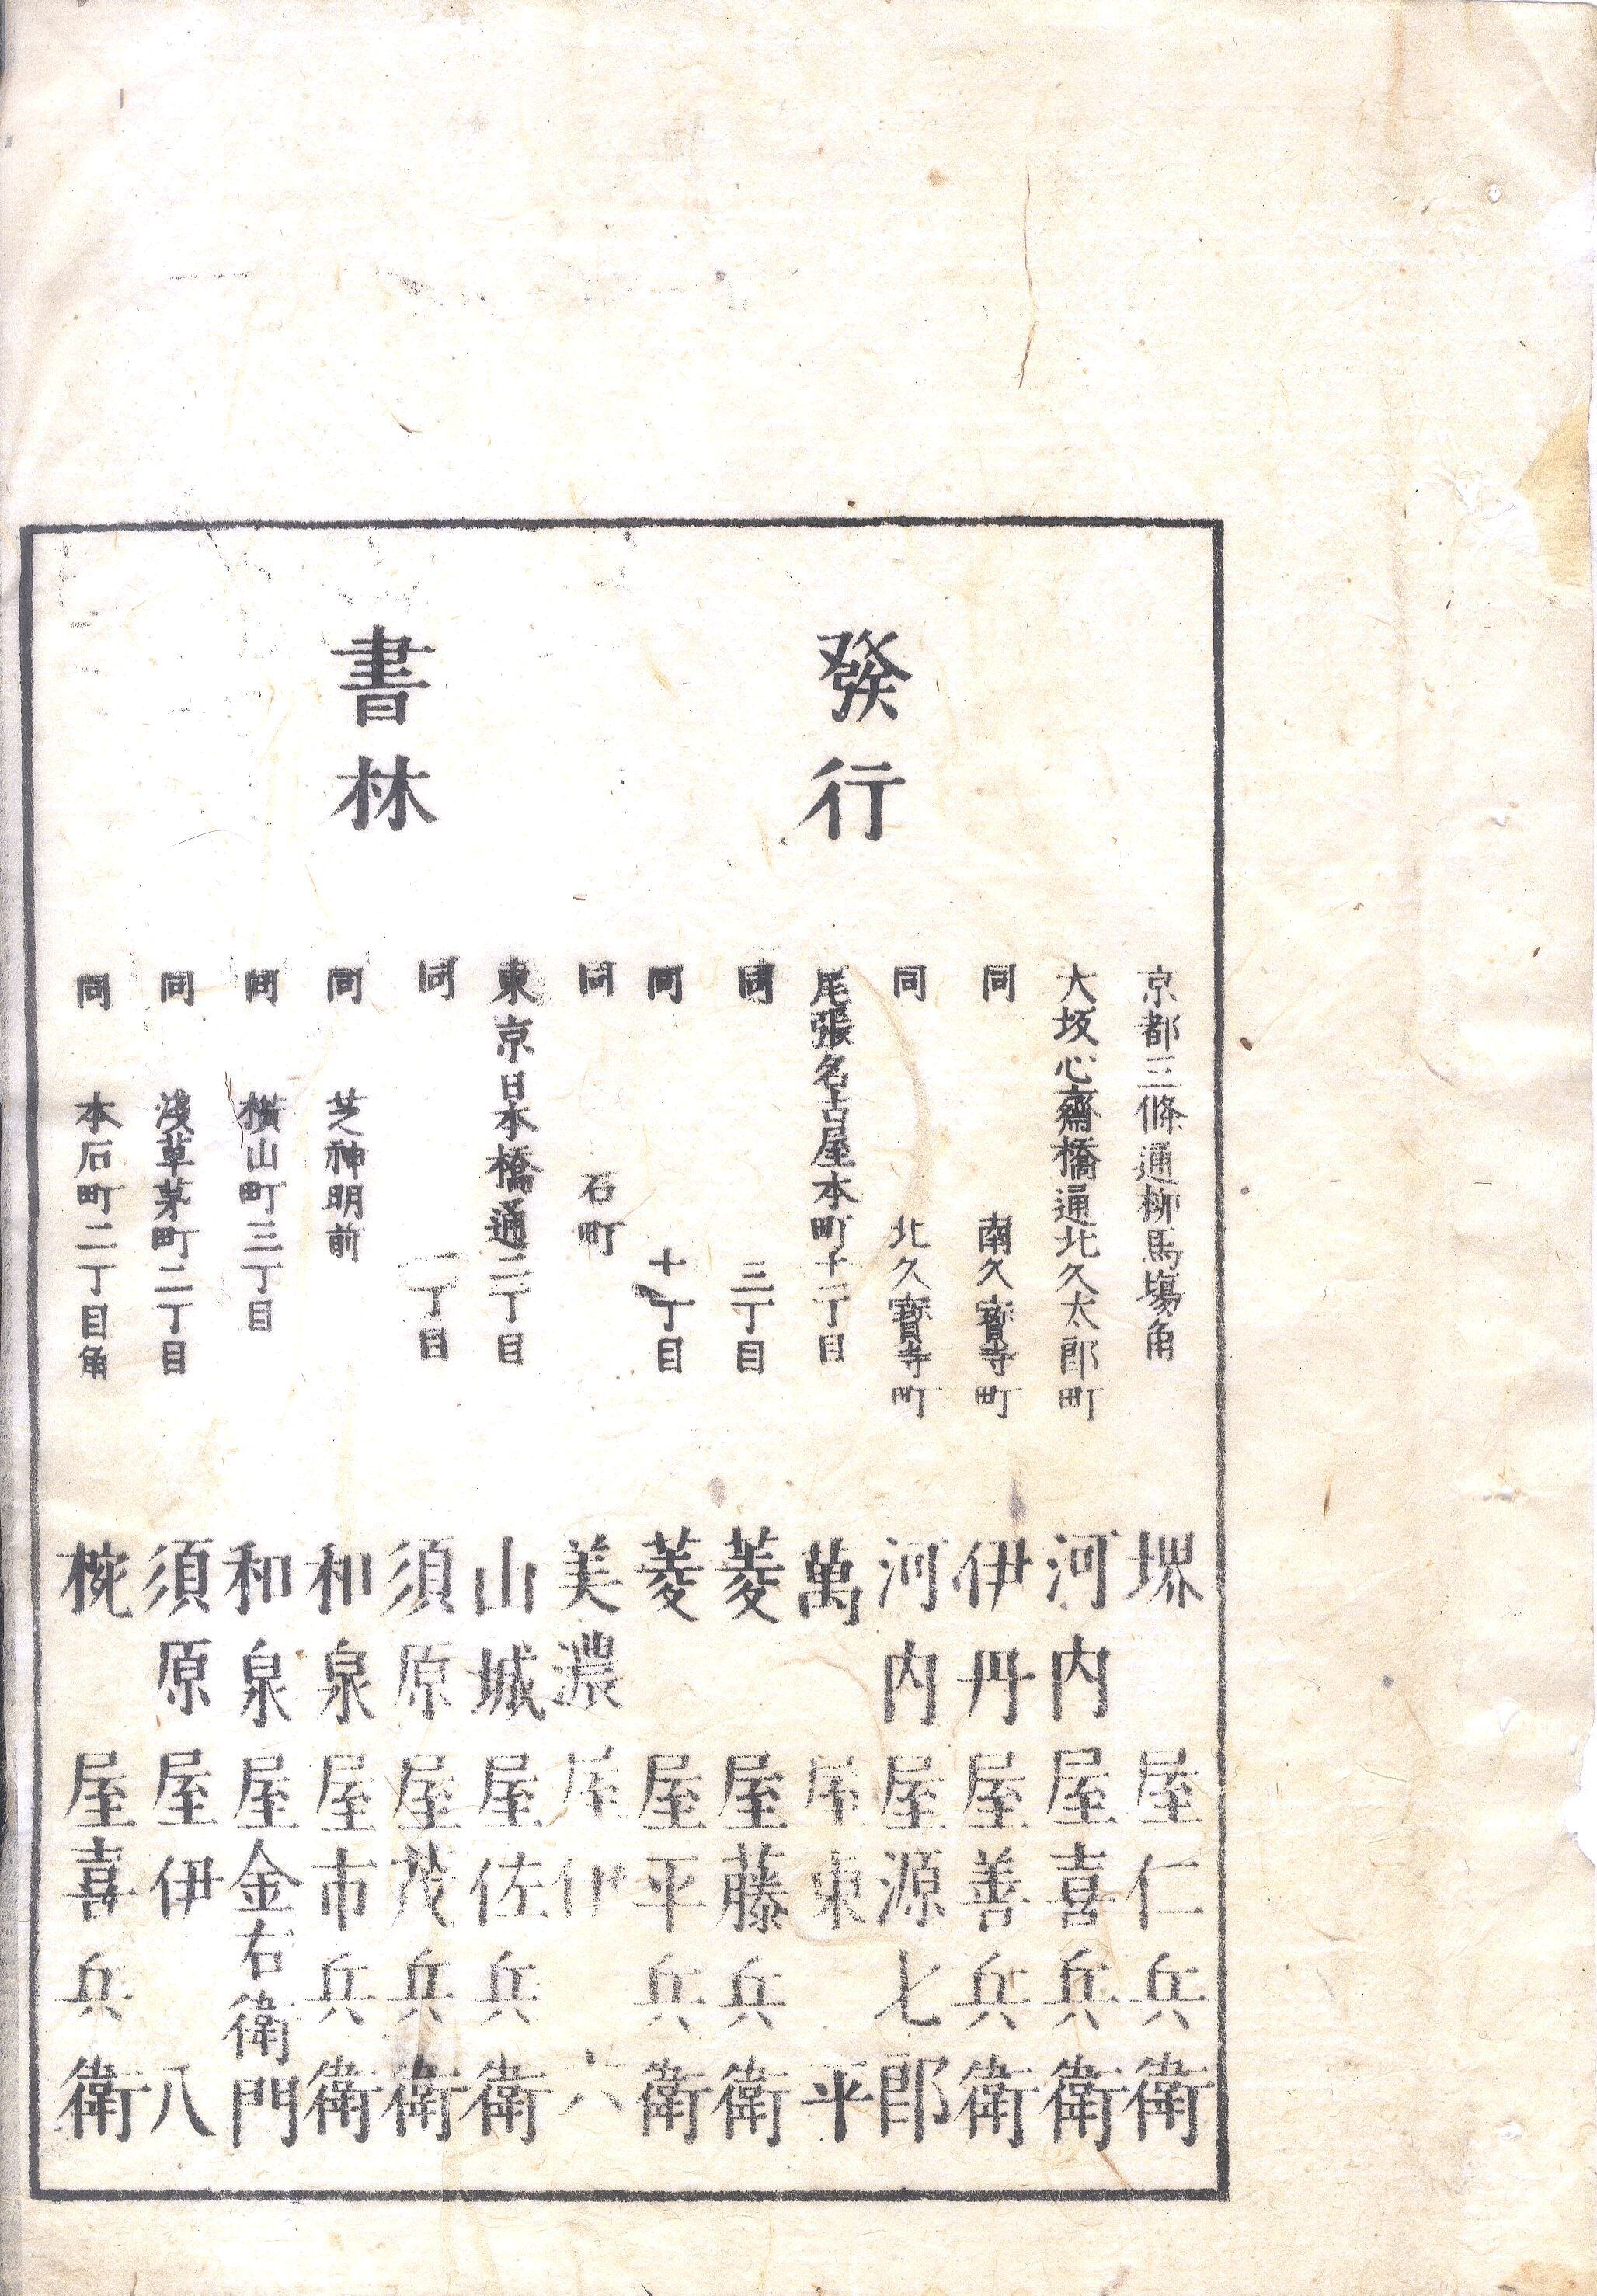 發行
書林
京都三條通柳馬塲角 堺屋仁兵衛
大坂心齋橋通北久太郎町 河内屋喜兵衛
同 南久寳寺町 伊丹屋善兵衛
同 北久寳寺町 河内屋源七郎
尾張名古屋本町十一丁目 萬屋東平
同 三丁目 菱屋藤兵衛
同 十丁目 菱屋平兵衛
同 石町 美濃屋伊六
東京日本橋通二丁目 山城屋佐兵衛
同 一丁目 須原屋茂兵衛
同 芝神明前 和泉屋市兵衛
同 横山町三丁目 和泉屋金右衛門
同 淺草茅町二丁目 須原屋伊八
同 本石町二丁目角 椀屋喜兵衛